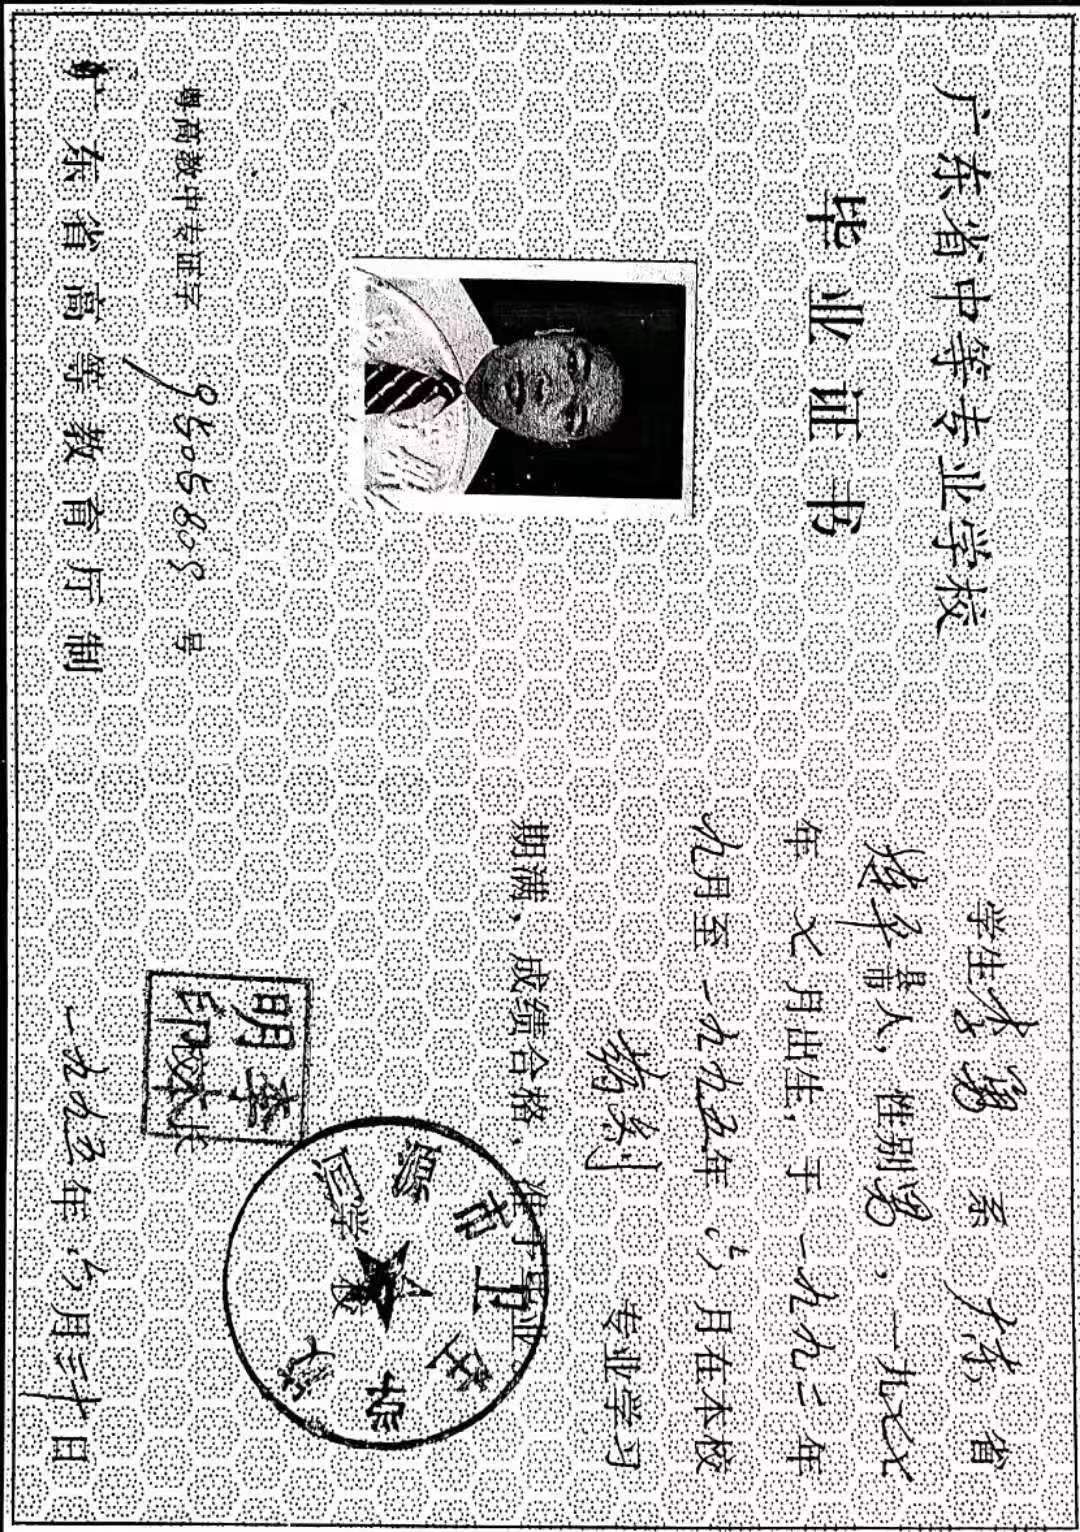 广东省中等专业学校
毕业证书
粤高教中专证字 9506808 号
广东省高等教育厅制
学生李勇 系 广东 省
县
市人, 性别男, 一九七七
年 七 月出生, 于 一九九二年
九月至 一九九五年 六 月在本校
专业学习
期满, 成绩合格, 准予毕业。
李明
印
市卫生
学校
一九九五年 六月三十日